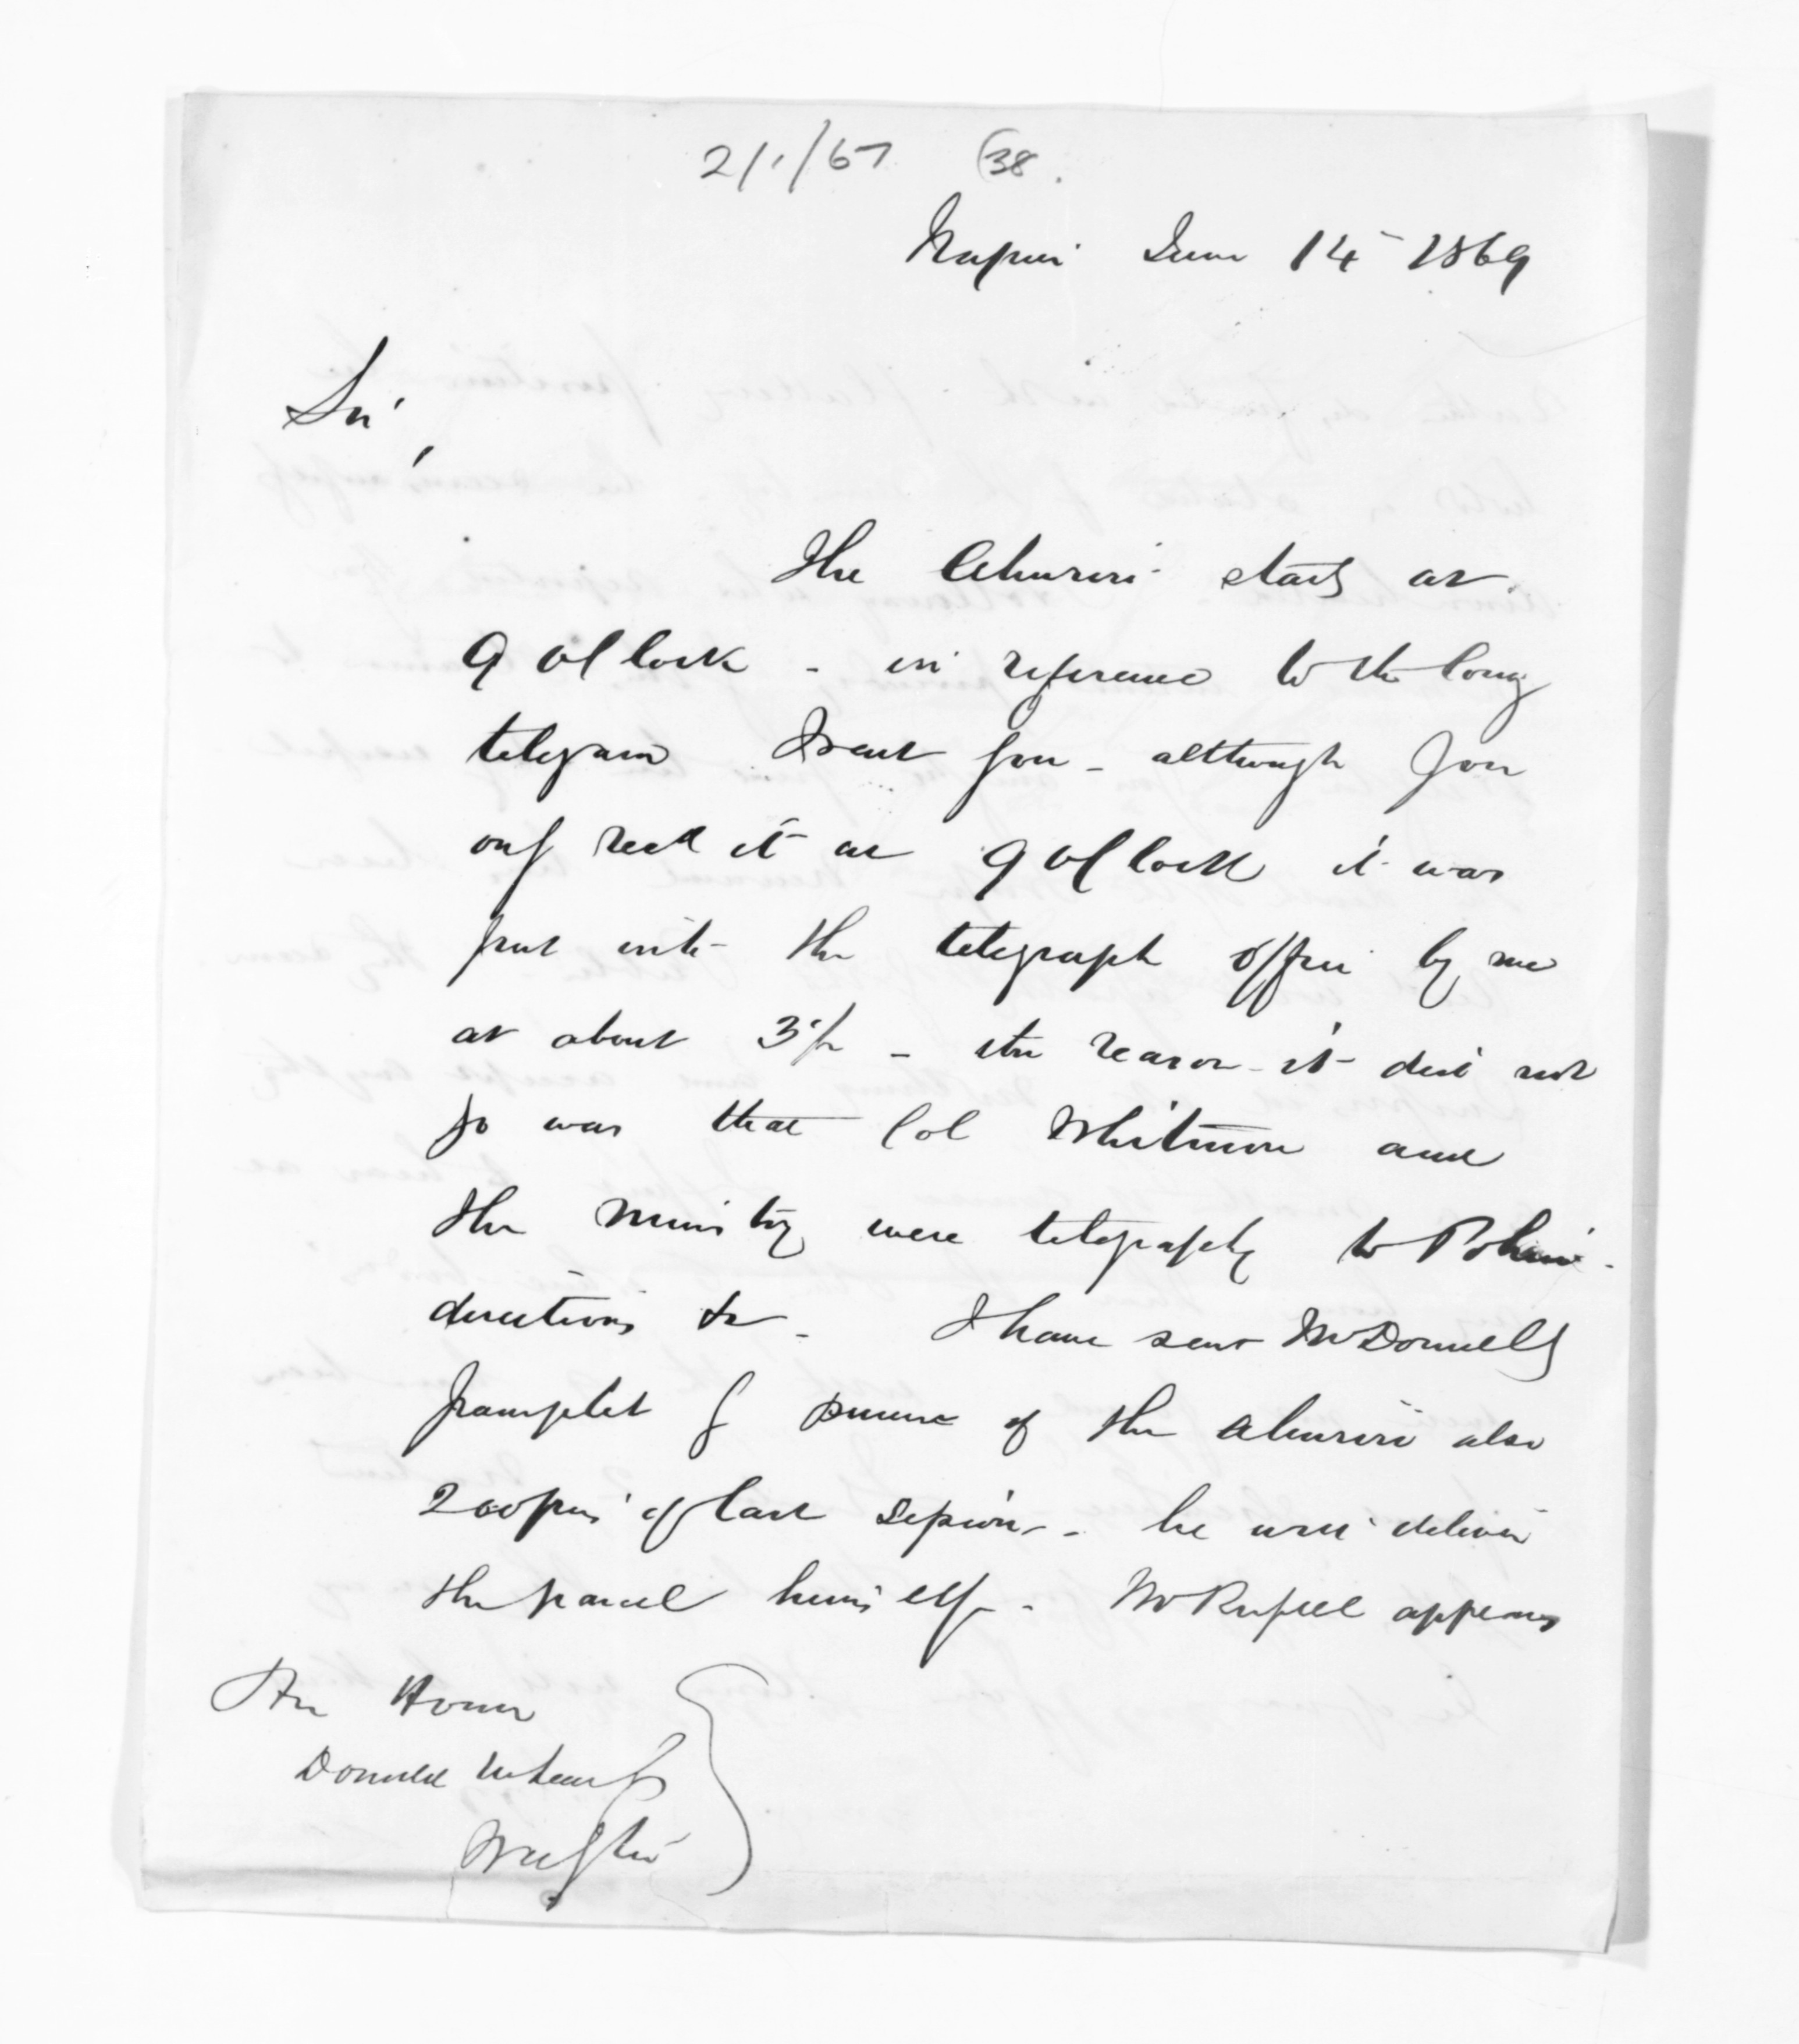 2/1/67 (38.
Napier June 14 1869
Sir,
The Ahuriri starts at
9 oClock - in reference to the long
telegram I sent you - although you
only recd it at 9 oClock it was
put into the telegraph office by me
at about 3 1/2 - the reason it did not
go was that Col Whitmore and
the Ministry were telegraphg to
directions &c - I have sent McDonnells
pamplet by purser of the Ahuriri also
2 copies of last session - he will deliver
the parcel himself - Mr Russell appears
His Honor
Donald McLean Esqr
Wellgtn